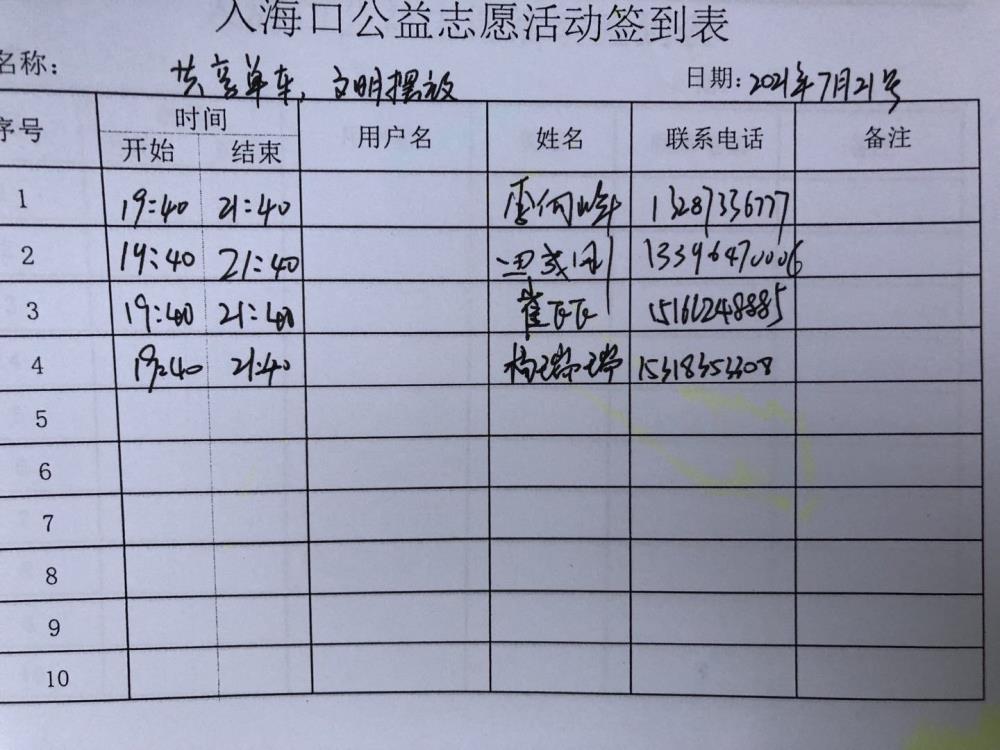 入海口公益志愿活动签到表
名称: 共享单车,文明摆放 日期: 2021年7月21号
序号 时间 用户名 姓名 联系电话 备注
开始 结束
1 19:40 21:40 13287336777
2 19:40 21:40 13396470006
3 19:40 21:40 15161248885
4 19:40 21:40 杨瑞瑞 15318353308
5
6
7
8
9
10